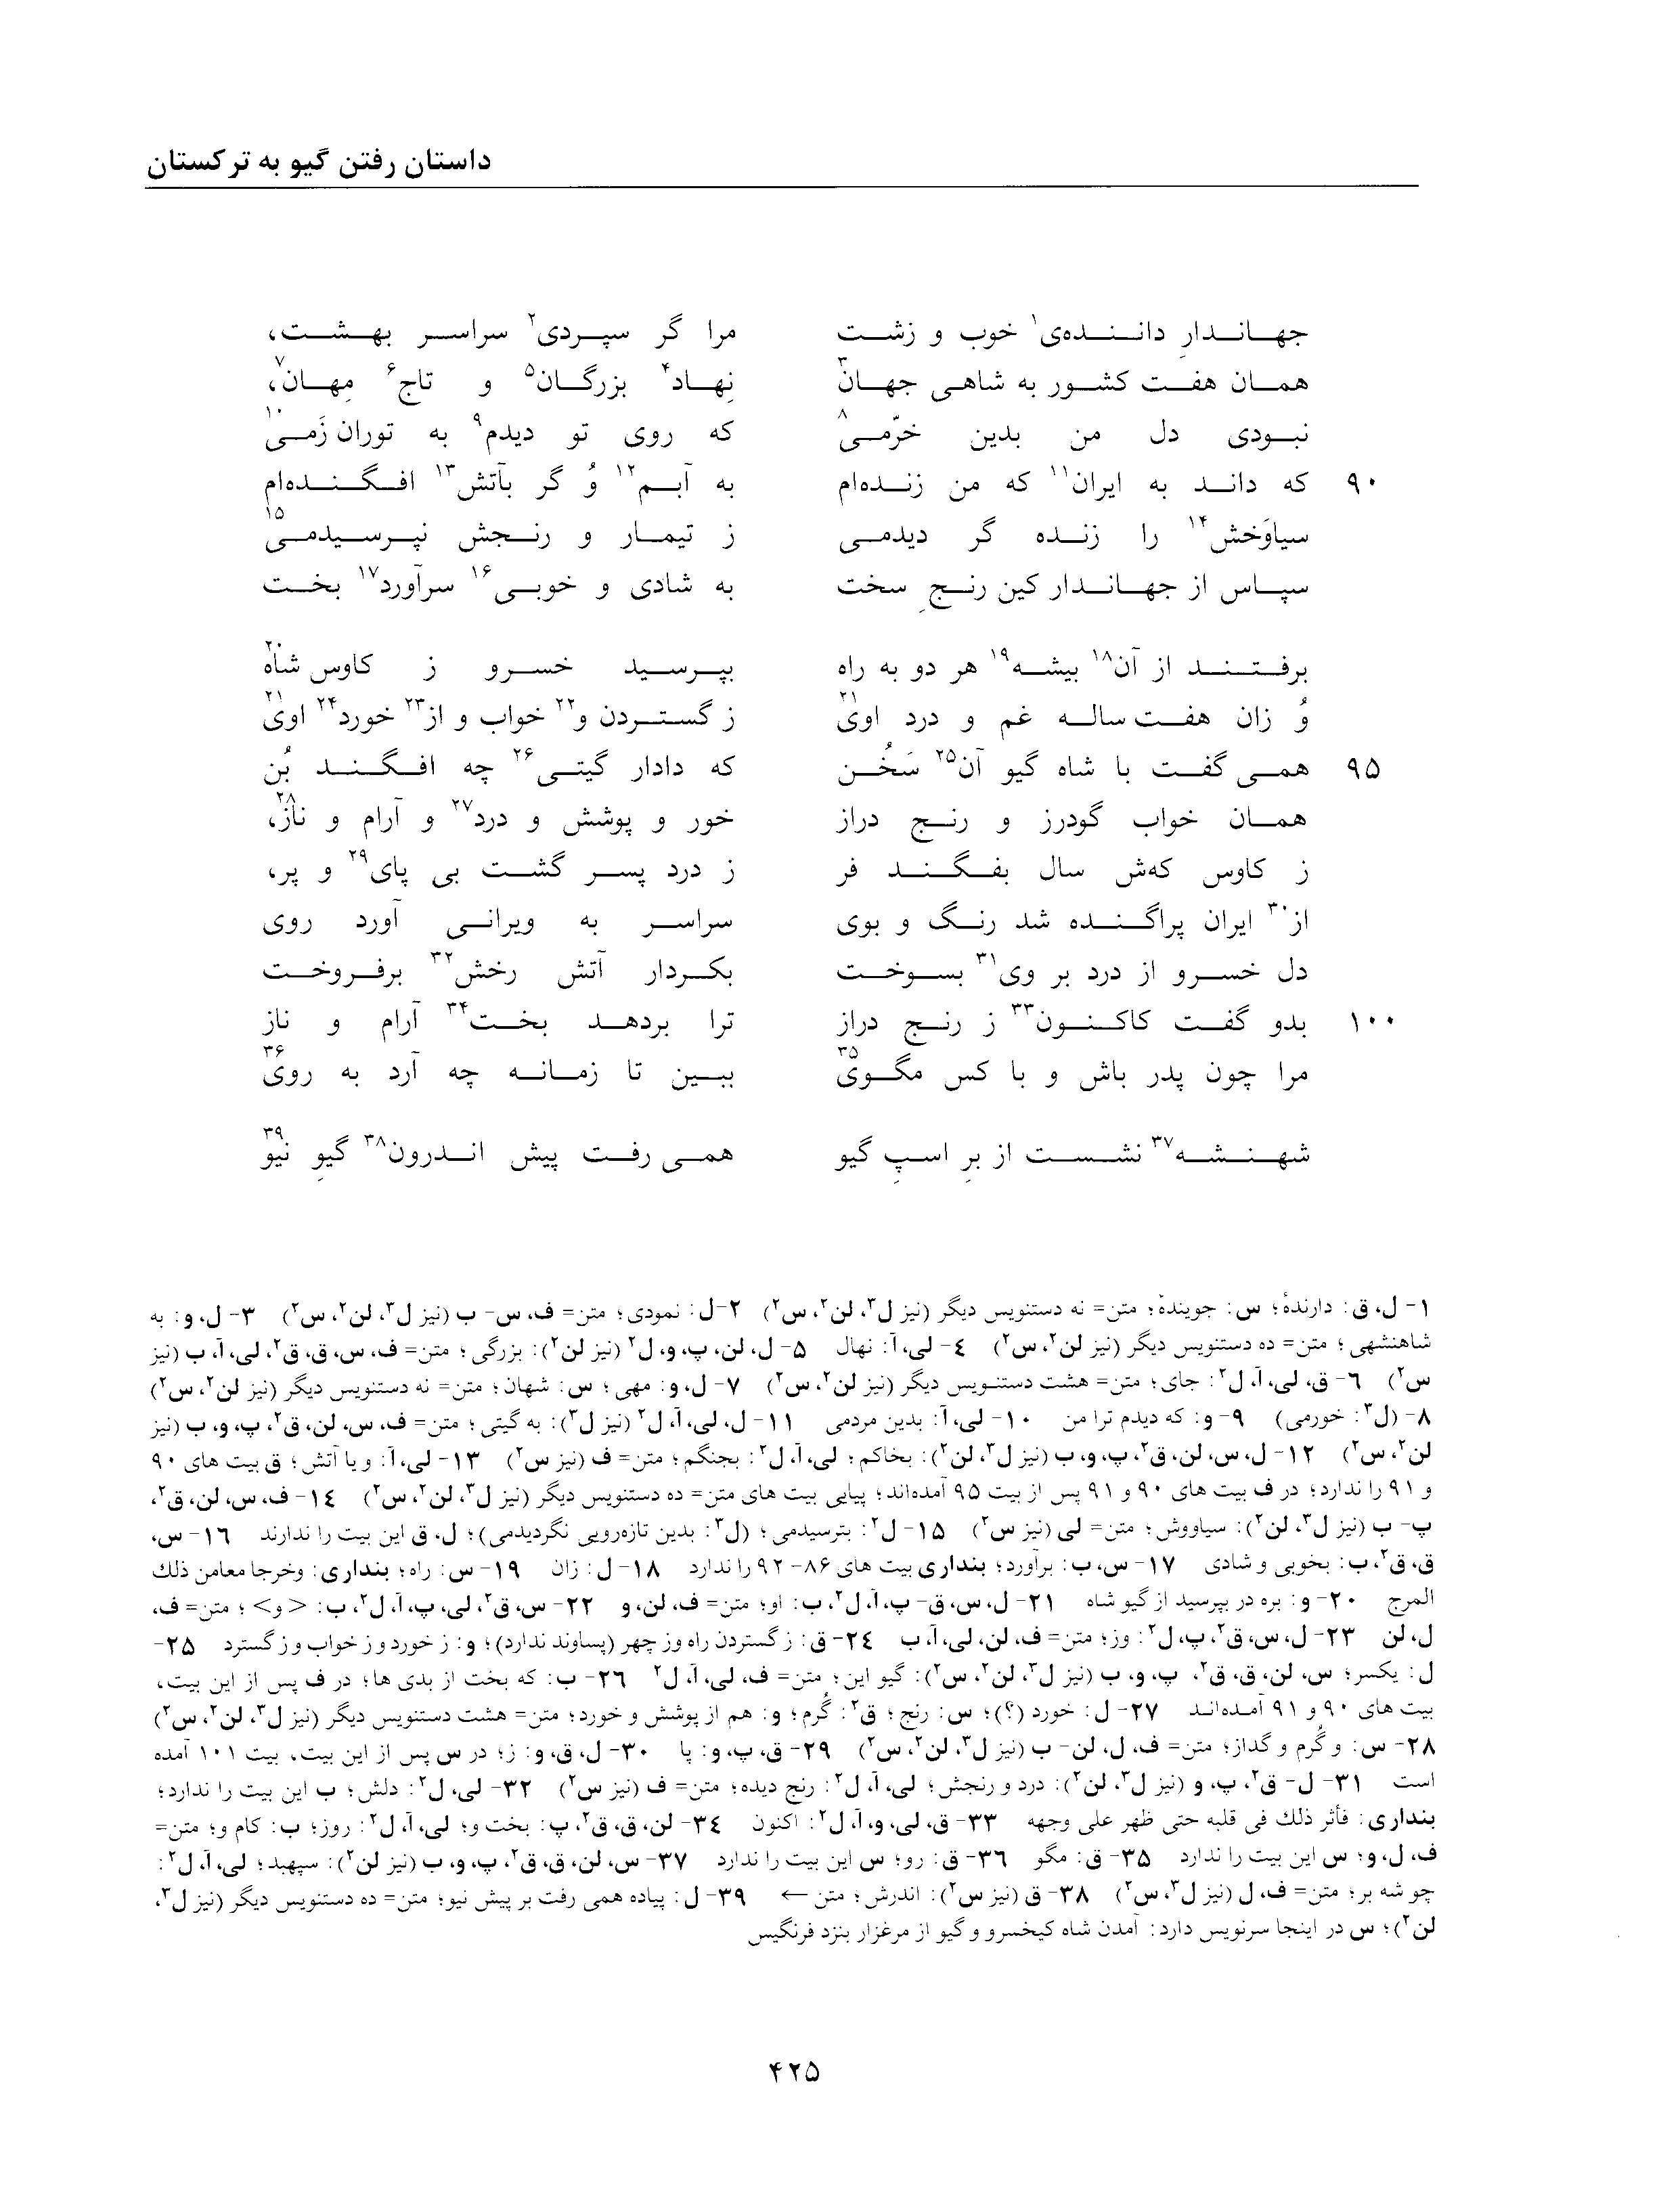 داستان رفتن گیو به ترکستان
جهاندارِ داننده‌ی۱ خوب و زشت مرا گر سپردی۲ سراسر بهشت،
همان هفت کشور به شاهی جهان۳ نِهاد۴ بزرگان۵ و تاج۶ مِهان۷،
نبودی دل من بدین خرّمی۸ که روی تو دیدم۹ به توران زَمی۱۰
۹۰ که داند به ایران۱۱ که من زنده‌ام به آبم۱۲ وُ گر بآتش۱۳ افگنده‌ام
سیاوَخش۱۴ را زنده گر دیدمی ز تیمار و رنجش نپرسیدمی۱۵
سپاس از جهاندار کین رنجِ سخت به شادی و خوبی۱۶ سرآورد۱۷ بخت
برفتند از آن۱۸ بیشه۱۹ هر دو به راه بپرسید خسرو ز کاوس شاه۲۰
وُ زان هفت‌ساله غم و درد اوی۲۱ ز گستردن و۲۲ خواب و از۲۳ خورد۲۴ اوی۲۱
۹۵ همی گفت با شاه گیو آن۲۵ سَخُن که دادار گیتی۲۶ چه افگند بُن
همان خواب گودرز و رنج دراز خور و پوشش و درد۲۷ و آرام و ناز۲۸،
ز کاوس که‌ش سال بفگند فر ز درد پسر گشت بی پای۲۹ و پر،
از۳۰ ایران پراگنده شد رنگ و بوی سراسر به ویرانی آورد روی
دل خسرو از درد بر وی۳۱ بسوخت بکردار آتش رخش۳۲ برفروخت
۱۰۰ بدو گفت کاکنون۳۳ ز رنج دراز ترا بردهد بخت۳۴ آرام و ناز
مرا چون پدر باش و با کس مگوی۳۵ ببین تا زمانه چه آرد به روی۳۶
شهنشه۳۷ نشست از برِ اسپِ گیو همی رفت پیش اندرون۳۸ گیوِ نیو۳۹
۱- ل، ق: دارندهٔ؛ س: جویندهٔ؛ متن= نه دستنویس دیگر (نیز ل۳، لن۲، س۲) ۲- ل: نمودی؛ متن= ف، س- ب (نیز ل۳، لن۲، س۲) ۳- ل، و: به
شاهنشهی؛ متن= ده دستنویس دیگر (نیز لن۲، س۲) ٤- لی، آ: نهال ۵- ل، لن، پ، و، ل۲ (نیز لن۲): بزرگی؛ متن= ف، س، ق، ق۲، لی، آ، ب (نیز
س۲) ٦- ق، لی، آ، ل۲: جای؛ متن= هشت دستنویس دیگر (نیز لن۲، س۲) ۷- ل، و: مهی؛ س: شهان؛ متن= نه دستنویس دیگر (نیز لن۲، س۲)
۸- (ل۳: خورمی) ۹- و: که دیدم ترا من ۱۰- لی، آ: بدین مردمی ۱۱- ل، لی، آ، ل۲ (نیز ل۳): به گیتی؛ متن= ف، س، لن، ق۲، پ، و، ب (نیز
لن۲، س۲) ۱۲- ل، س، لن، ق۲، پ، و، ب (نیز ل۳، لن۲): بخاکم؛ لی، آ، ل۲: بجنگم؛ متن= ف (نیز س۲) ۱۳- لی، آ: و یا آتش؛ ق بیت های ۹۰
و ۹۱ را ندارد؛ در ف بیت های ۹۰ و ۹۱ پس از بیت ۹۵ آمده‌اند؛ پیایی بیت های متن= ده دستنویس دیگر (نیز ل۳، لن۲، س۲) ۱٤- ف، س، لن، ق۲،
پ- ب (نیز ل۳، لن۲): سیاووش؛ متن= لی (نیز س۲) ۱۵- ل۲: بترسیدمی؛ (ل۳: بدین تازه‌رویی نگردیدمی)؛ ل، ق این بیت را ندارند ۱٦- س،
ق، ق۲، ب: بخوبی و شادی ۱۷- س، ب: برآورد؛ بنداری بیت های ۸۶- ۹۲ را ندارد ۱۸- ل: زان ۱۹- س: راه؛ بنداری: وخرجا معامن ذلك
المرج ۲۰- و: بره در بپرسید از گیو شاه ۲۱- ل، س، ق- پ، آ، ل۲، ب: او؛ متن= ف، لن، و ۲۲- س، ق۲، لی، پ، آ، ل۲، ب: <و>؛ متن= ف،
ل، لن ۲۳- ل، س، ق۲، پ، ل۲: وز؛ متن= ف، لن، لی، آ، ب ۲٤- ق: ز گستردن راه وز چهر (پساوند ندارد)؛ و: ز خورد و ز خواب و ز گسترد ۲۵-
ل: یکسر؛ س، لن، ق، ق۲، پ، و، ب (نیز ل۳، لن۲، س۲): گیو این؛ متن= ف، لی، آ، ل۲ ۲٦- ب: که بخت از بدی ها؛ در ف پس از این بیت،
بیت های ۹۰ و ۹۱ آمده‌اند ۲۷- ل: خورد (؟)؛ س: رنج؛ ق۲: گُرم؛ و: هم از پوشش و خورد؛ متن= هشت دستنویس دیگر (نیز ل۳، لن۲، س۲)
۲۸- س: و گُرم و گداز؛ متن= ف، ل، لن- ب (نیز ل۳، لن۲، س۲) ۲۹- ق، پ، و: پا ۳۰- ل، ق، و: ز؛ در س پس از این بیت، بیت ۱۰۱ آمده
است ۳۱- ل- ق۲، پ، و (نیز ل۳، لن۲): درد و رنجش؛ لی، آ، ل۲: رنج دیده؛ متن= ف (نیز س۲) ۳۲- لی، ل۲: دلش؛ ب این بیت را ندارد؛
بنداری: فأثر ذلك فی قلبه حتی ظهر علی وجهه ۳۳- ق، لی، و، آ، ل۲: اکنون ۳٤- لن، ق، ق۲، پ: بخت و؛ لی، آ، ل۲: روز؛ ب: کام و؛ متن=
ف، ل، و؛ س این بیت را ندارد ۳۵- ق: مگو ۳٦- ق: رو؛ س این بیت را ندارد ۳۷- س، لن، ق، ق۲، پ، و، ب (نیز لن۲): سپهبد؛ لی، آ، ل۲:
چو شه بر؛ متن= ف، ل (نیز ل۳، س۲) ۳۸- ق (نیز س۲): اندرش؛ متن ← ۳۹- ل: پیاده همی رفت بر پیش نیو؛ متن= ده دستنویس دیگر (نیز ل۳،
لن۲)؛ س در اینجا سرنویس دارد: آمدن شاه کیخسرو و گیو از مرغزار بنزد فرنگیس
۴۲۵